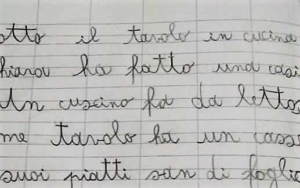 otto il tavolo in cucina
hiara ha fatto una casi
Un cuscino fa da letto
me tavolo ha un cass
suoi piatti son di foglie